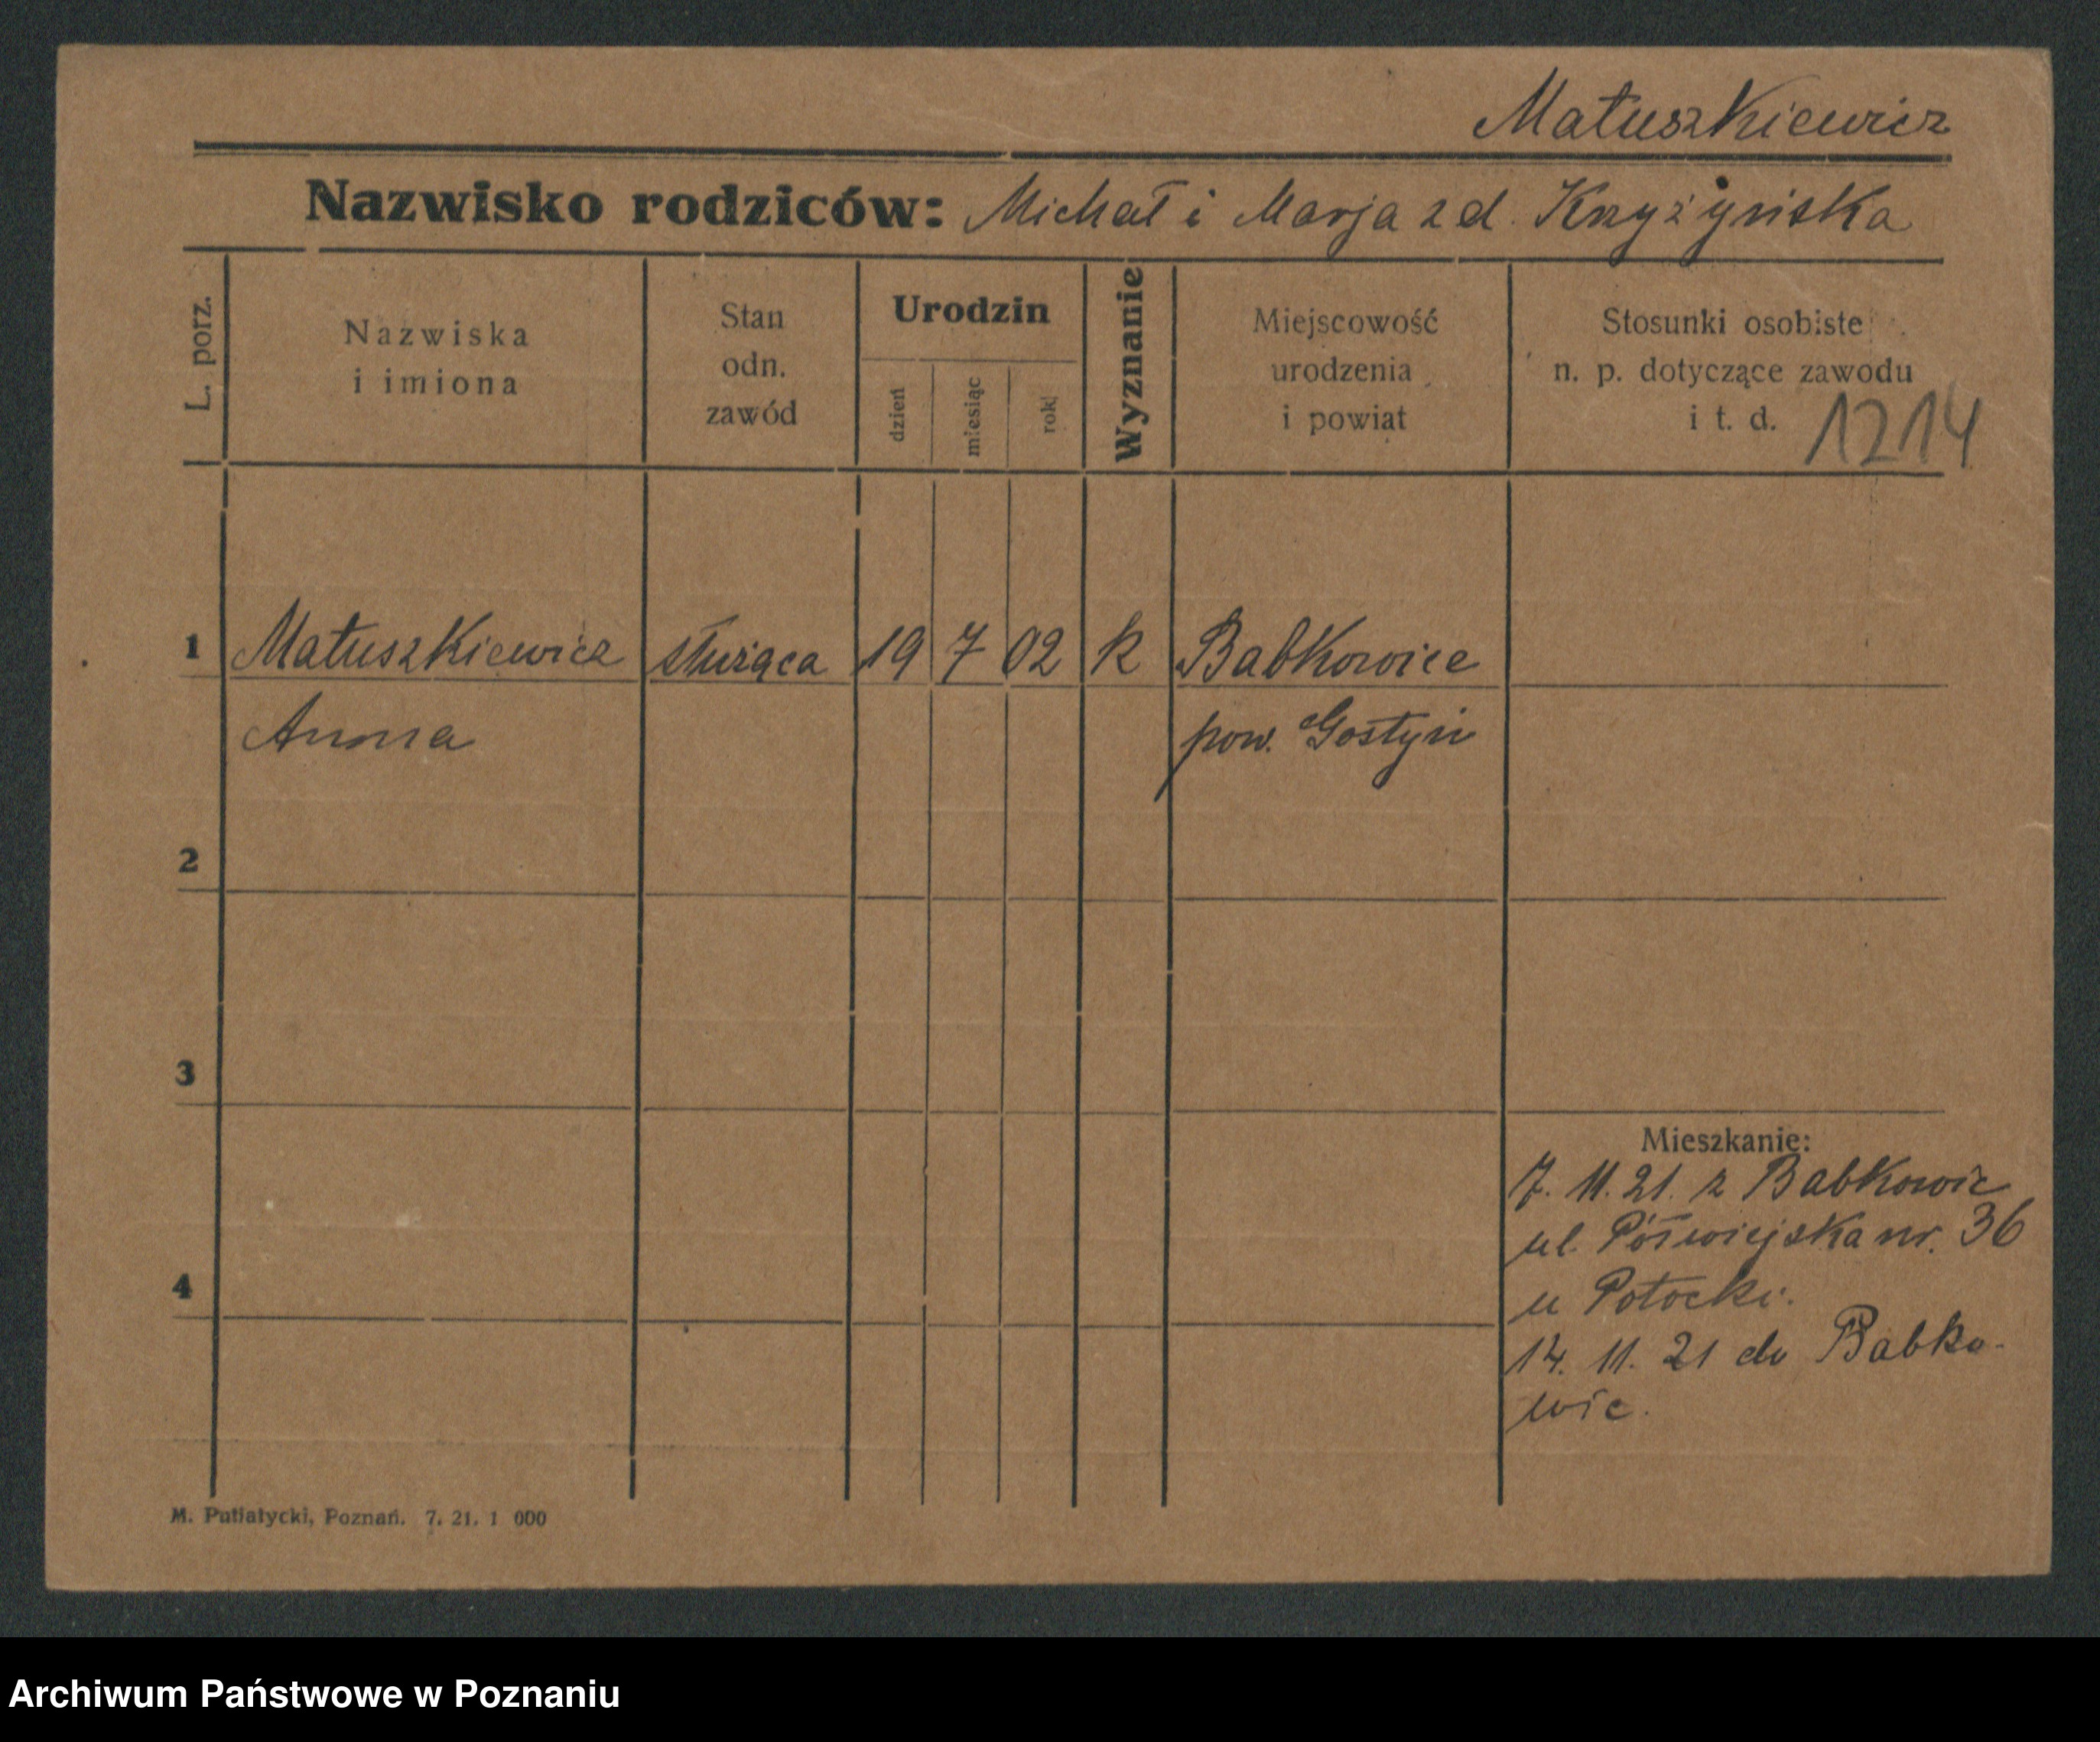 Matuszkiewicz
Nazwisko rodziców: Michał i Marja z d. Krzyżyńska
L. porz.
Nazwiska
i imiona
Stan
odn.
zawód
Urodzin
dzień
miesiąc
rok
Wyznanie
Miejscowość
urodzenia
i powiat
Stosunki osobiste
n. p. dotyczące zawodu
i t. d.
1214
1 Matuszkiewicz służąca 19 7 02 k Babkowice
Anna pow. Gostyń
2
3
Mieszkanie:
7. 11. 21. z Babkowic
ul. Półwiejska nr. 36
4
u Potocki.
14. 11. 21 do Babko-
wic.
M. Putiatycki, Poznań. 7. 21. 1 000
Archiwum Państwowe w Poznaniu